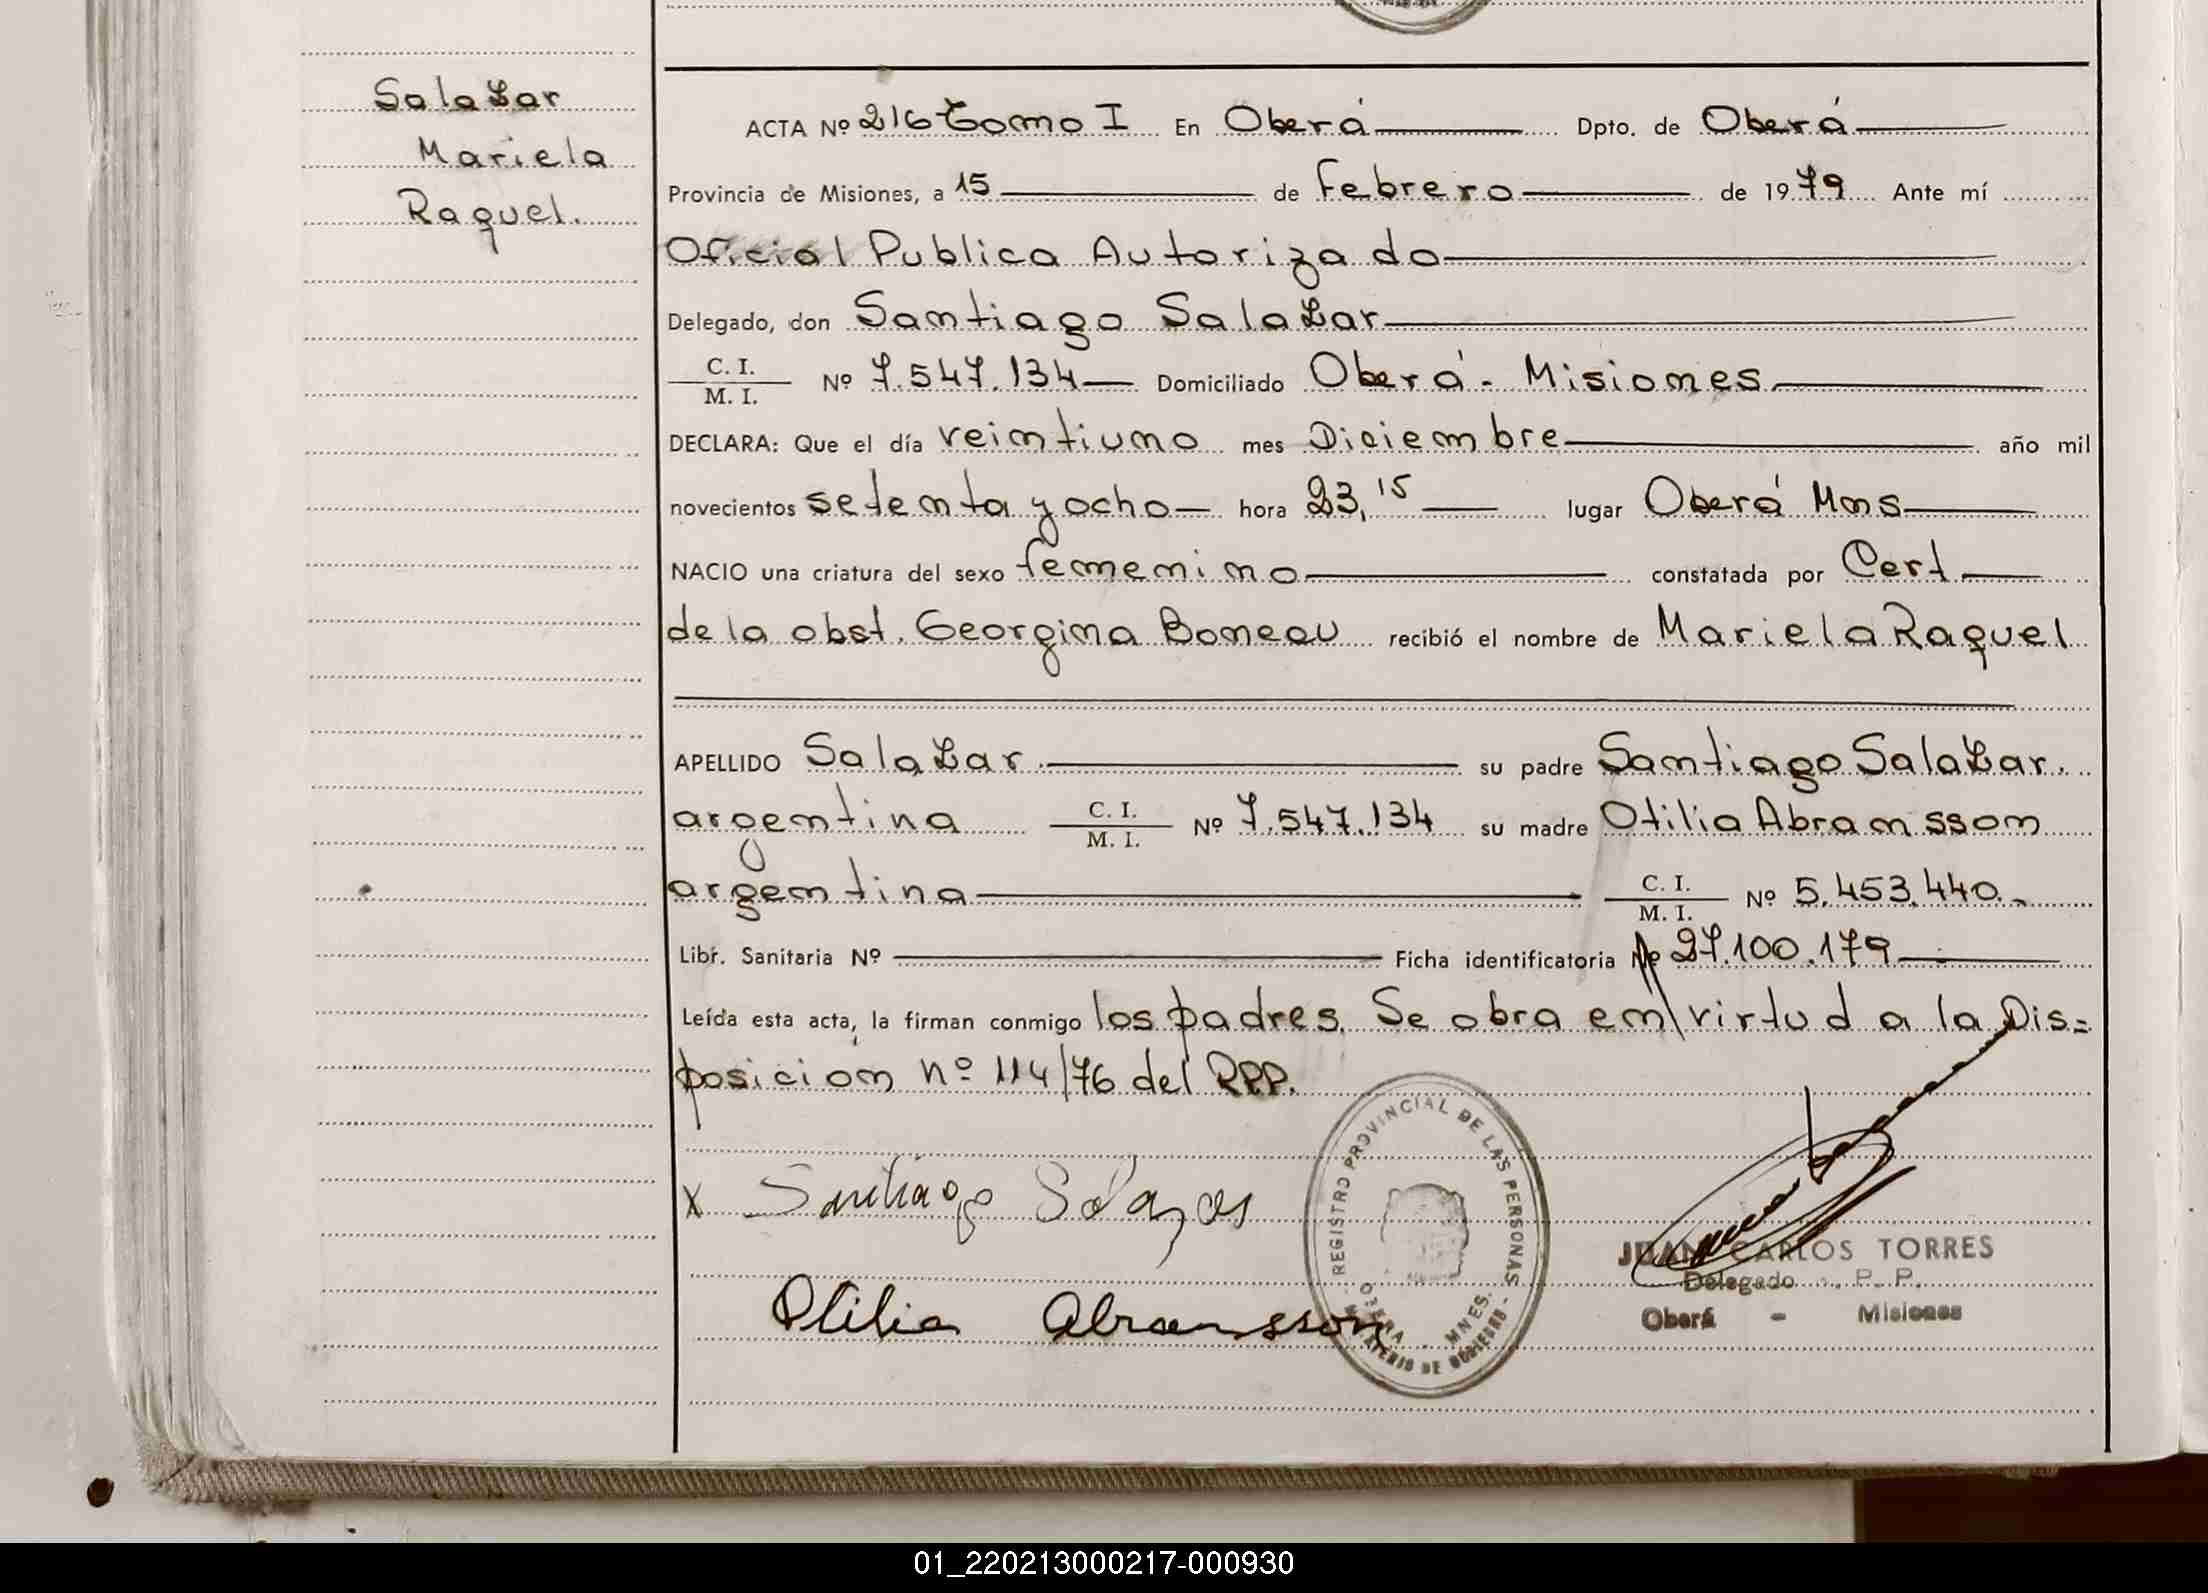 Salazar
Mariela
Raquel.
ACTA Nº 216 Tomo I En Oberá Dpto. de Oberá
Provincia de Misiones, a 15 de Febrero de 1979 Ante mí
Oficial Publica Autorizado
Delegado, don Santiago Salazar
C. I.
M. I. Nº 7.547.134 Domiciliado Oberá - Misiones
DECLARA: Que el día veintiuno mes Diciembre año mil
novecientos setenta y ocho hora 23,15 lugar Oberá Mns
NACIO una criatura del sexo femenino constatada por Cert
de la obst. Georgina Boneau recibió el nombre de Mariela Raquel
APELLIDO Salazar su padre Santiago Salazar.
argentina C. I.
M. I. Nº 7.547.134 su madre Otilia Abramsson
argentina C. I.
M. I. Nº 5.453.440.
Libr. Sanitaria Nº Ficha identificatoria Nº 27.100.179
Leída esta acta, la firman conmigo los padres. Se obra en virtud a la Dis=
posición nº 114/76 del RPP.
X Santiago Salazar
Otilia Abramsson
REGISTRO PROVINCIAL DE LAS PERSONAS
OBERA - MNES.
MINISTERIO DE GOBIERNO
JUAN CARLOS TORRES
Delegado P. P.
Oberá - Misiones
01_220213000217-000930